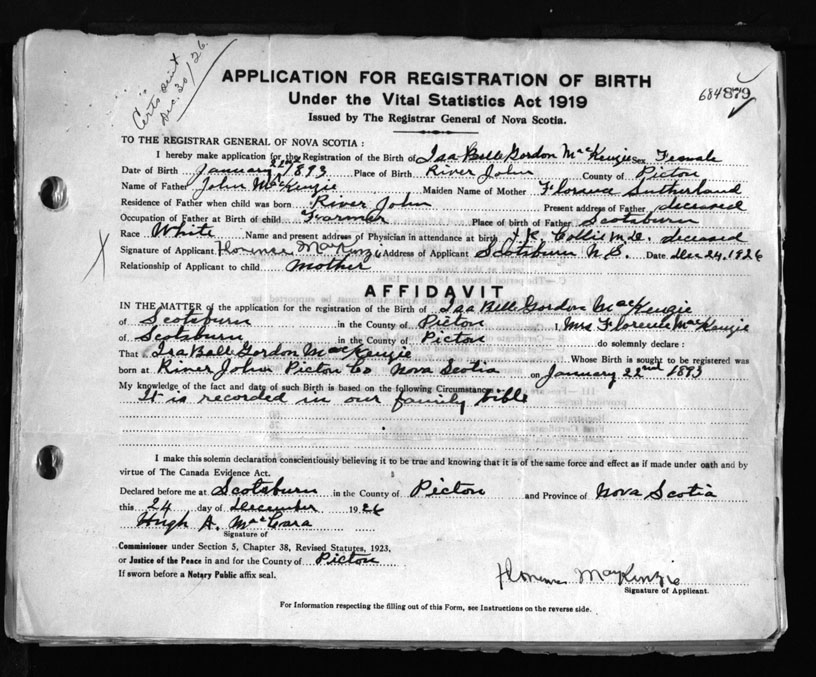 Certs sent
Dec. 30/26.
APPLICATION FOR REGISTRATION OF BIRTH
Under the Vital Statistics Act 1919
684879
Issued by The Registrar General of Nova Scotia.
TO THE REGISTRAR GENERAL OF NOVA SCOTIA :
I hereby make application for the Registration of the Birth of Isa Belle Gordon MacKenzie Sex Female
Date of Birth January 22nd 1893 Place of Birth River John County of Picton
Name of Father John McKenzie Maiden Name of Mother Florence Sutherland
Residence of Father when child was born River John Present address of Father deceased
Occupation of Father at Birth of child Farmer Place of birth of Father Scotsburn
Race White Name and present address of Physician in attendance at birth Collie M.D. deceased
Signature of Applicant Florence MacKenzie Address of Applicant Scotsburn N.S. Date Dec 24, 1926
Relationship of Applicant to child Mother
AFFIDAVIT
IN THE MATTER of the application for the registration of the Birth of Isa Belle Gordon MacKenzie
of Scotsburn in the County of Picton I, Mrs Florence MacKenzie
of Scotsburn in the County of Picton do solemnly declare :
That Isa Belle Gordon MacKenzie Whose Birth is sought to be registered was
born at River John Picton Co Nova Scotia on January 22nd 1893
My knowledge of the fact and date of such Birth is based on the following Circumstances
It is recorded in our family bible
I make this solemn declaration conscientiously believing it to be true and knowing that it is of the same force and effect as if made under oath and by
virtue of The Canada Evidence Act.
Declared before me at Scotsburn in the County of Picton and Province of Nova Scotia
this 24 day of December 1926
Hugh A. MacLara
Signature of
Commissioner under Section 5, Chapter 38, Revised Statutes, 1923,
or Justice of the Peace in and for the County of Picton
If sworn before a Notary Public affix seal.
Florence MacKenzie
Signature of Applicant.
For Information respecting the filling out of this Form, see Instructions on the reverse side.